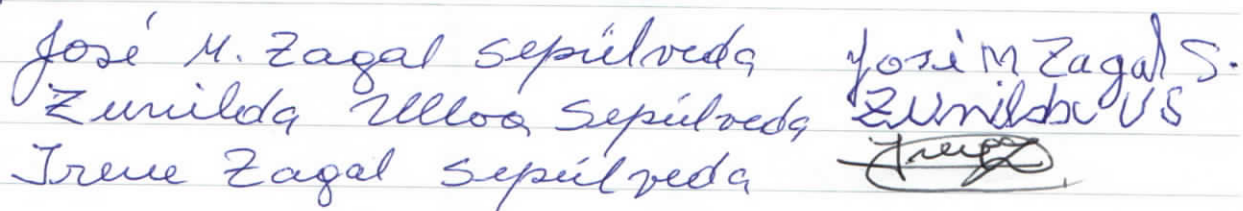 José M. Zagal Sepúlveda José M Zagal S.
Zunilda Ulloa Sepúlveda Zunilda U S
Irene Zagal Sepúlveda Irene Z